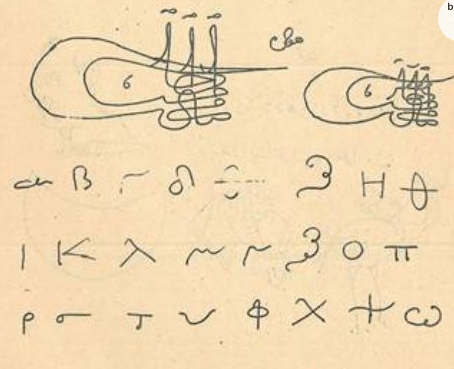 6 6
α Β Γ δ ζ Η θ
Ι Κ λ μ ν ξ ο π
ρ σ τ υ φ χ ψ ω